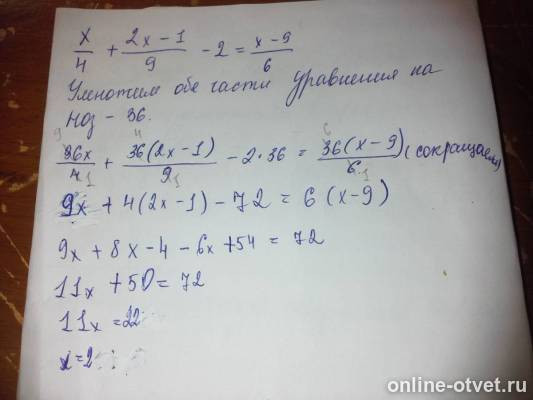 x/4 + (2x - 1)/9 - 2 = (x - 9)/6
Умножим обе части уравнения на
НОЗ - 36.
9 4 6
36x/4 1 + 36(2x - 1)/9 1 - 2·36 = 36(x - 9)/6 1 (сокращаем)
9x + 4(2x - 1) - 72 = 6(x - 9)
9x + 8x - 4 - 6x + 54 = 72
11x + 50 = 72
11x = 22
x = 2
online-otvet.ru